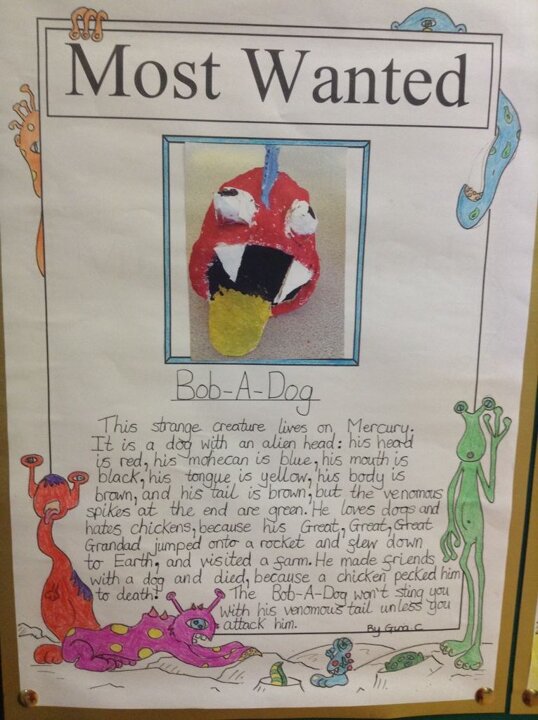 Most Wanted
Bob-A-Dog
This strange creature lives on Mercury.
It is a dog with an alien head: his head
is red, his mohecan is blue, his mouth is
black, his tongue is yellow, his body is
brown, and his tail is brown, but the venomous
spikes at the end are green. He loves dogs and
hates chickens, because his Great, Great, Great
Grandad jumped onto a rocket and flew down
to Earth, and visited a farm. He made friends
with a dog and died, because a chicken pecked him
to death! The Bob-A-Dog won't sting you
with his venomous tail unless you
attack him.
By C